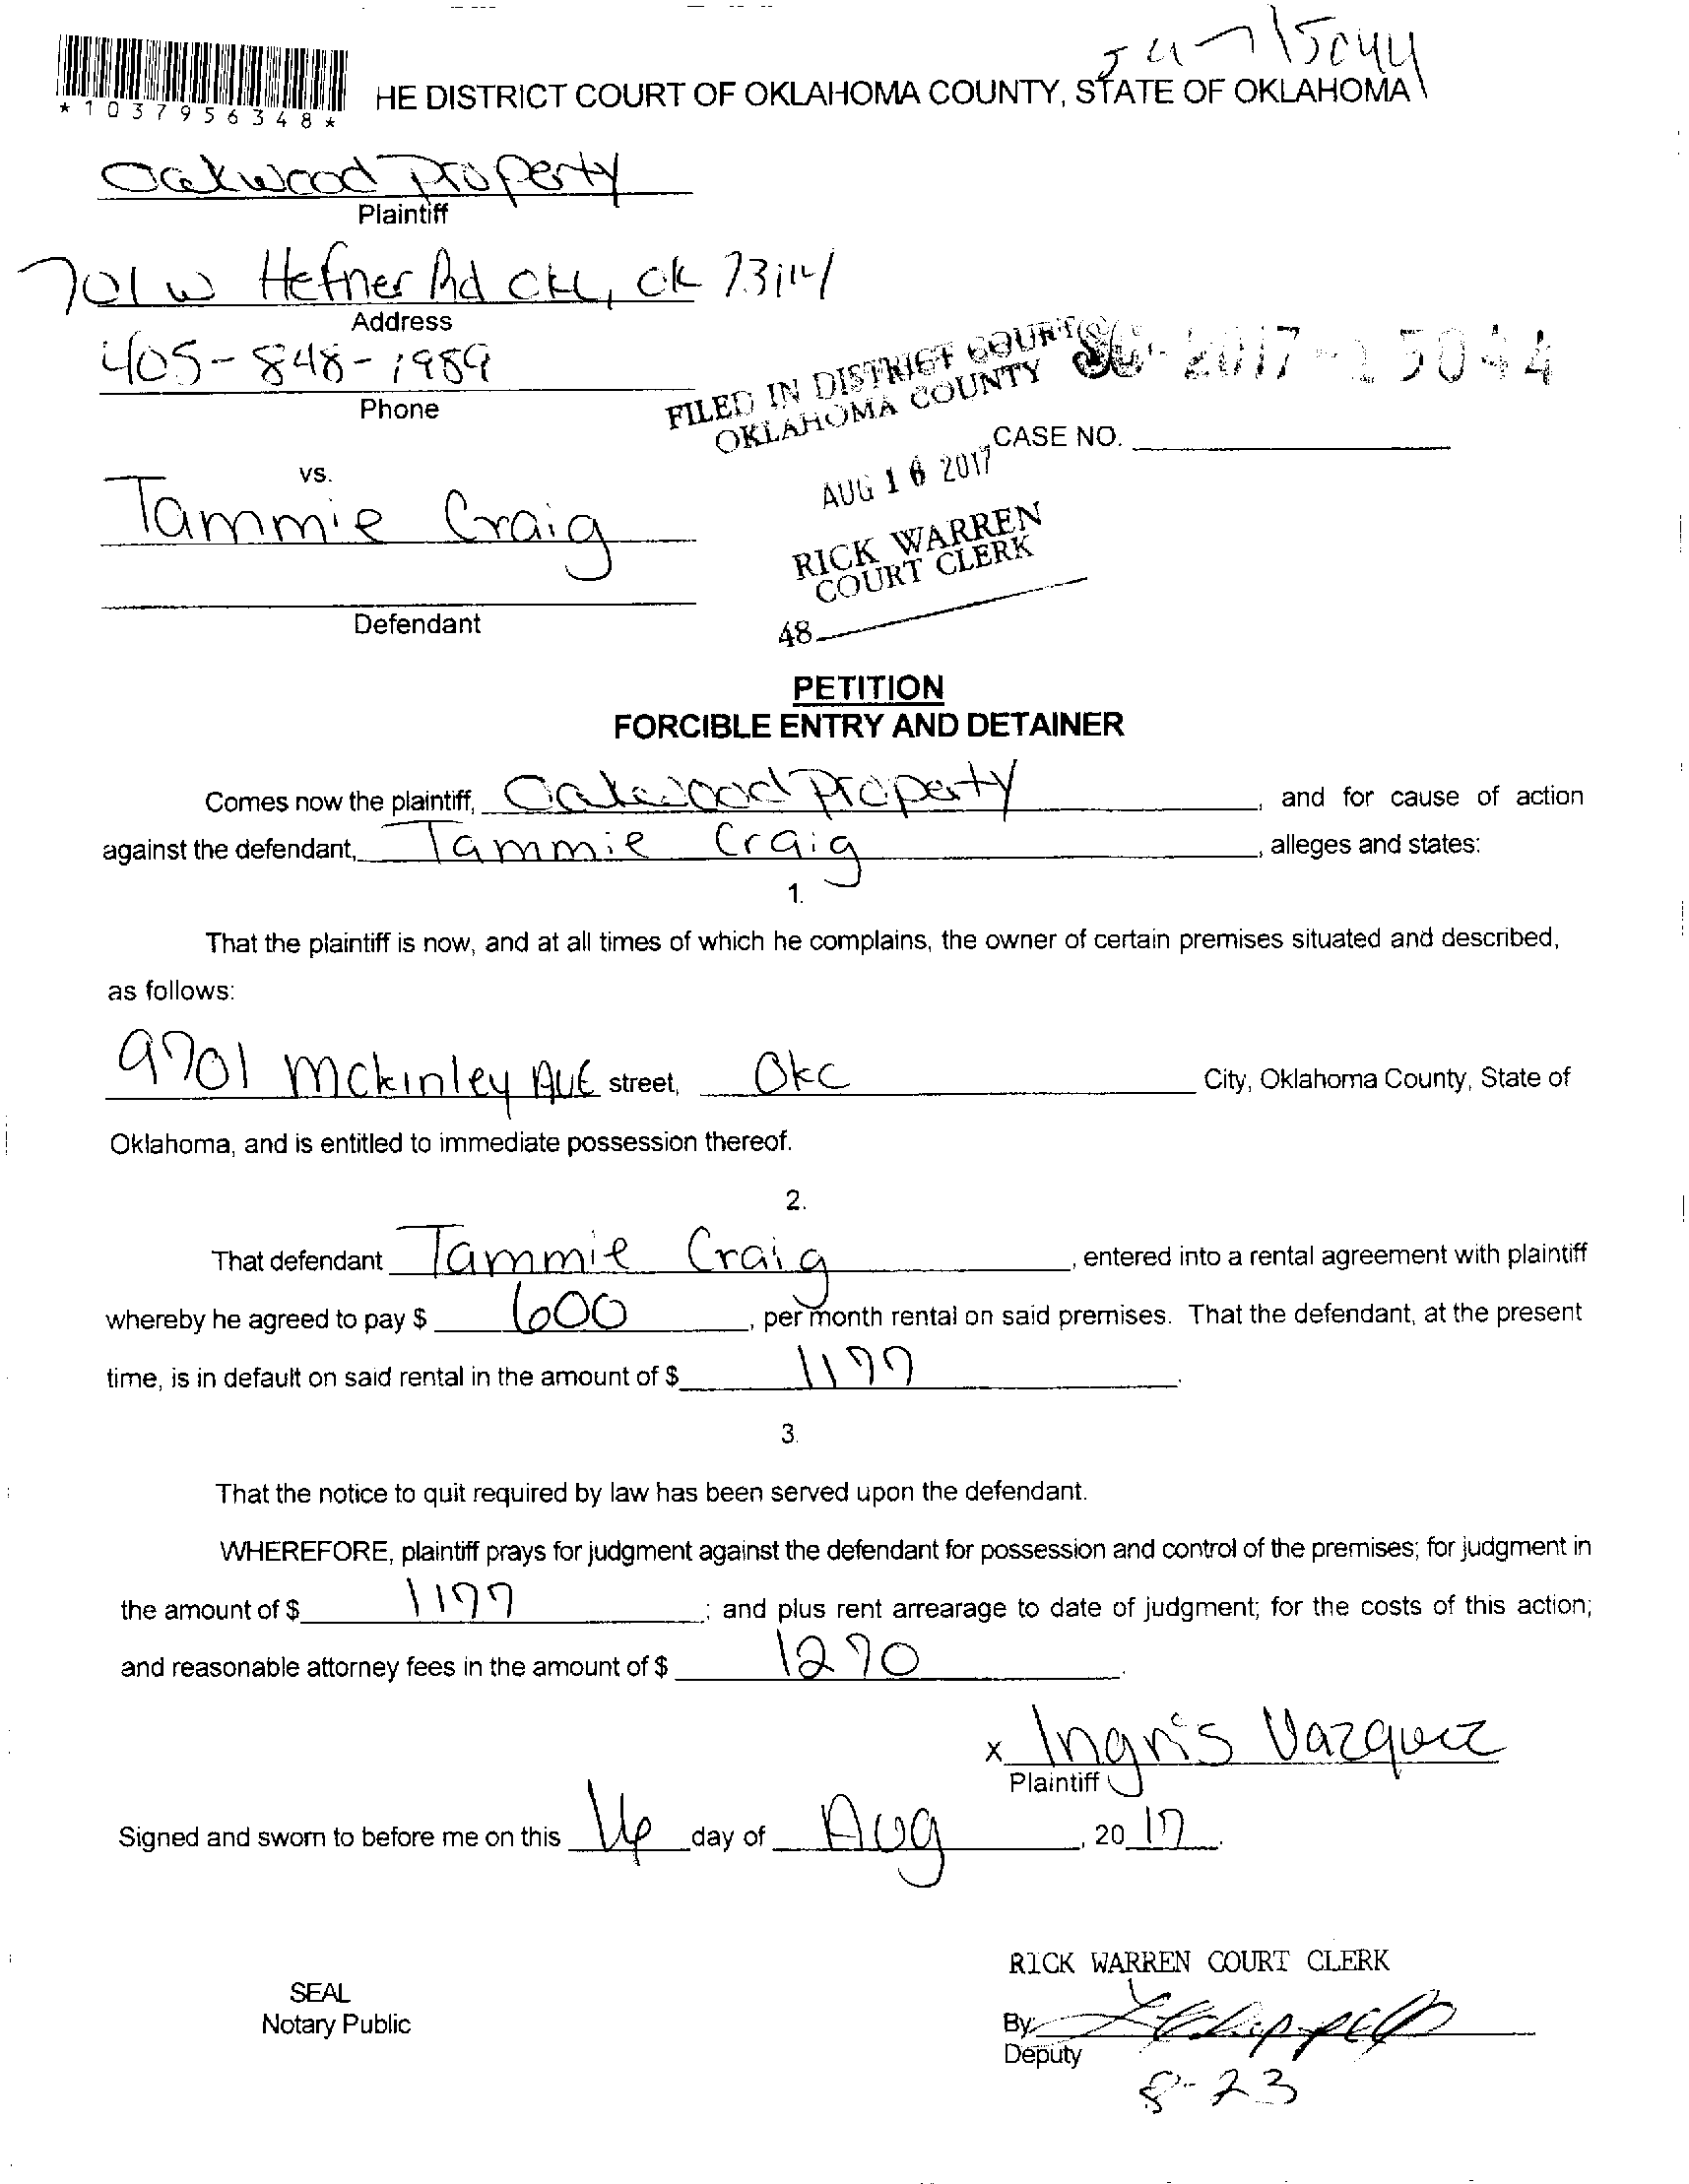 54-7 15044
*1037956348*
HE DISTRICT COURT OF OKLAHOMA COUNTY, STATE OF OKLAHOMA
Oakwood Property
Plaintiff
701 W Hefner Rd OKC, OK 73114
Address
405-848-1989
Phone
FILED IN DISTRICT COURT
OKLAHOMA COUNTY
SC-2017-15044
CASE NO.
AUG 16 2017
vs.
Tammie Craig
RICK WARREN
COURT CLERK
Defendant
48
PETITION
FORCIBLE ENTRY AND DETAINER
Comes now the plaintiff, Oakwood Property, and for cause of action
against the defendant, Tammie Craig, alleges and states:
1.
That the plaintiff is now, and at all times of which he complains, the owner of certain premises situated and described,
as follows:
9701 Mckinley Ave street, Okc City, Oklahoma County, State of
Oklahoma, and is entitled to immediate possession thereof.
2.
That defendant Tammie Craig, entered into a rental agreement with plaintiff
whereby he agreed to pay $ 600, per month rental on said premises. That the defendant, at the present
time, is in default on said rental in the amount of $ 1177.
3.
That the notice to quit required by law has been served upon the defendant.
WHEREFORE, plaintiff prays for judgment against the defendant for possession and control of the premises; for judgment in
the amount of $ 1177; and plus rent arrearage to date of judgment; for the costs of this action;
and reasonable attorney fees in the amount of $ 1270.
x Ingris Vazquez
Plaintiff
Signed and sworn to before me on this 16 day of Aug, 20 17.
RICK WARREN COURT CLERK
SEAL
Notary Public
By
Deputy
8-23